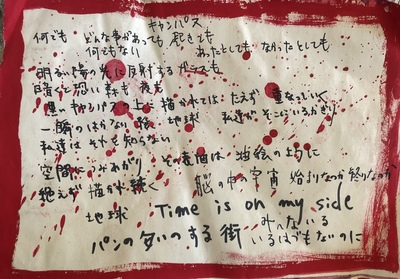 キャンパス
何でも どんな事があっても 起きても
何でもない あったとしても なかったとしても
明るい陽の光に反射するガラスも
暗くて恐い森も 夜も
黒いキャンパスの上に描かれては たえず 重なっていく
一瞬のはかない 地球 私達がそこにいるかぎり
私達はそれを知らない
空間にうみあがり その意識は 油絵の上に
絶えず 描かれ続く 脳の中の宇宙 始まりなのか 終りなのか
地球 Time is on my side
みへないる
パンの匂いのする街 いるはずもないのに